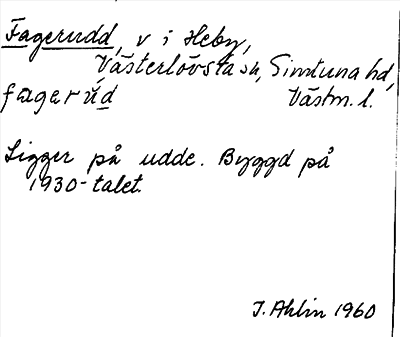 Fagerudd, v i Heby,
Västerlövsta sn, Simtuna hd,
fagerúd Västm. l.
Ligger på udde. Byggd på
1930-talet.
J. Ahlin 1960